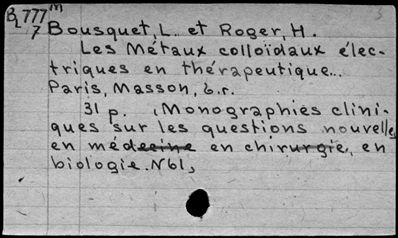 Q 777 m
7 Bousquet, L. et Roger, H.
Les Métaux colloïdaux élec-
triques en thérapeutique...
Paris, Masson, s.r.
31 p. (Monographies clini-
ques sur les questions nouvelles
en médecine en chirurgie, en
biologie. N61)